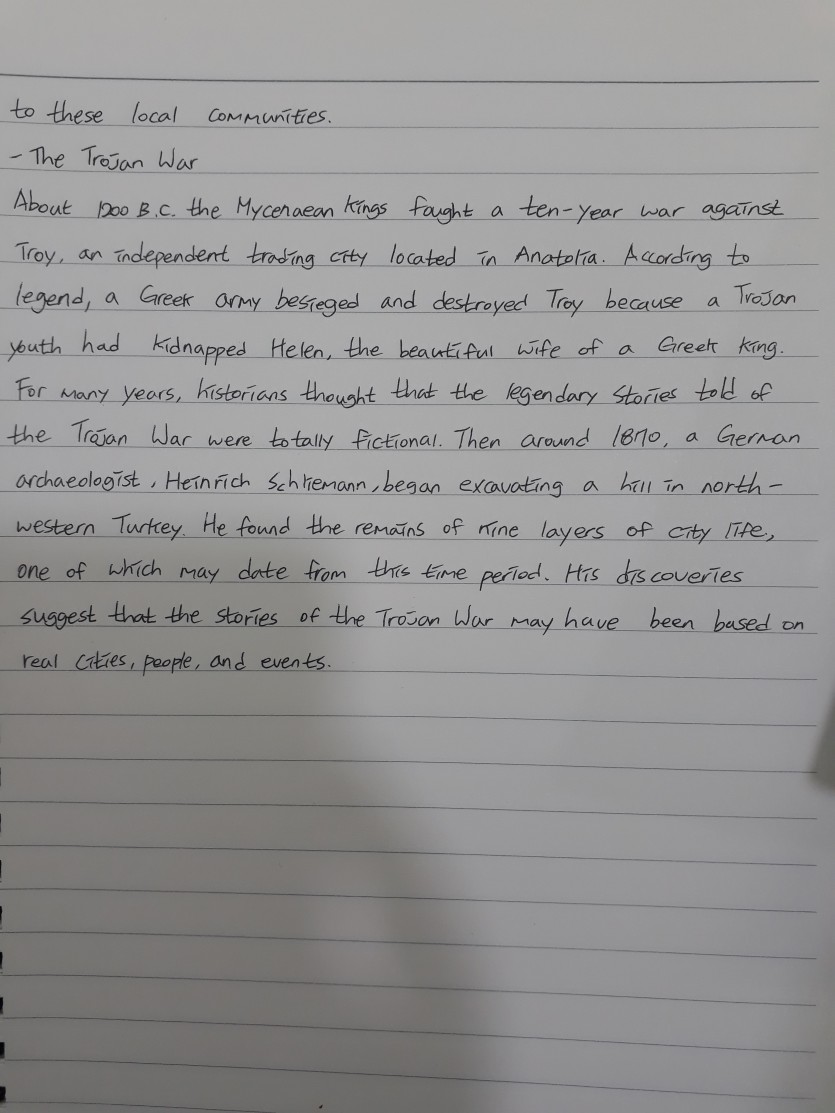 to these local communities.
- The Trojan War
About 1200 B.C. the Mycenaean kings fought a ten-year war against
Troy, an independent trading city located in Anatolia. According to
legend, a Greek army besieged and destroyed Troy because a Trojan
youth had kidnapped Helen, the beautiful wife of a Greek king.
For many years, historians thought that the legendary stories told of
the Trojan War were totally fictional. Then around 1870, a German
archaeologist, Heinrich Schliemann, began excavating a hill in north-
western Turkey. He found the remains of nine layers of city life,
one of which may date from this time period. His discoveries
suggest that the stories of the Trojan War may have been based on
real cities, people, and events.